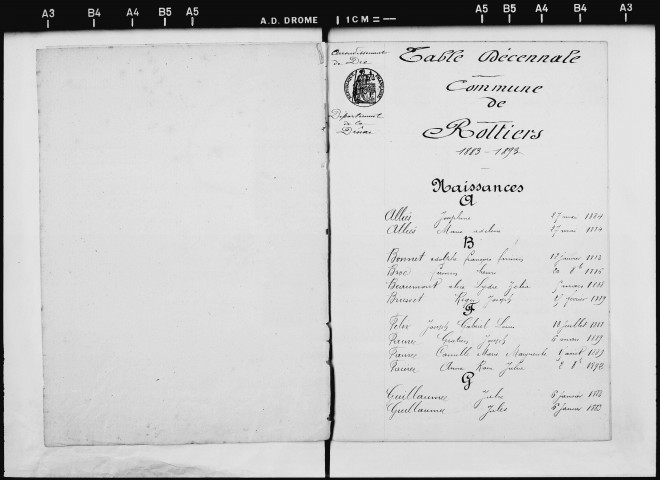 A3 B4 A4 B5 A5 A.D. DROME 1 CM A5 B5 A4 B4 A3
Arrondissement
de Die
Département
de la
Drôme
Table Décennale
Commune
de
Rottiers
1883-1892
Naissances
A
Alliés Joséphine 27 mai 1884
Alliés Marie 27 mai 1884
B
Bonnet adolphe françois firmin 12 janvier
Broc firmin
Beaumont elie Julie mars 1888
Joseph 27 février 1889
F
Felix Joseph Gabriel 18 juillet 1888
Faure Gratien Joseph 6 mars 1889
Faure Camille Marie Marguerite 1 août 1889
Faure Anna Rose Julie 1892
G
Guillaume Julie 6 janvier 1883
Guillaume Jules 6 janvier 1883